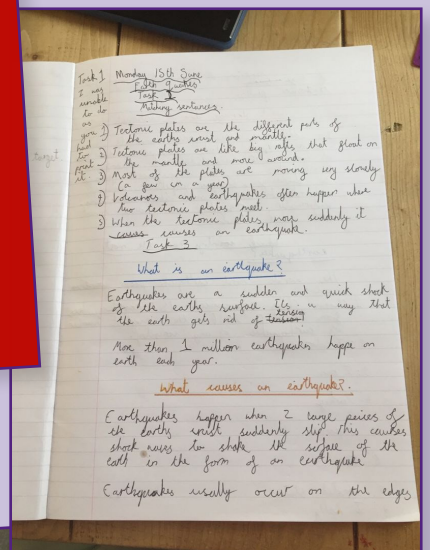 Task 1
I was
unable
to do
as
you
had
to
print
it.
Monday 15th June
Earth Quakes
Task 2
Matching sentences.
1) Tectonic plates are the different parts of
the earths crust and mantle.
2) Tectonic plates are like big rafts that float on
the mantle and move around.
3) Most of the plates are moving very slowly
(a few cm a year)
4) Volcanoes and earthquakes often happen where
two tectonic plates meet.
5) When the tectonic plates move suddenly it
causes causes an earthquake.
Task 3
What is an earthquake?
Earthquakes are a sudden and quick shock
of the earths surface. Its a way that
the earth gets rid of tension
More than 1 million earthquakes happe on
earth each year.
What causes an earthquake?.
Earthquakes happen when 2 large peices of
the earths crust suddenly slip this causes
shock waves to shake the surface of the
earth in the form of an earthquake
Earthquakes usually occur on the edges
target